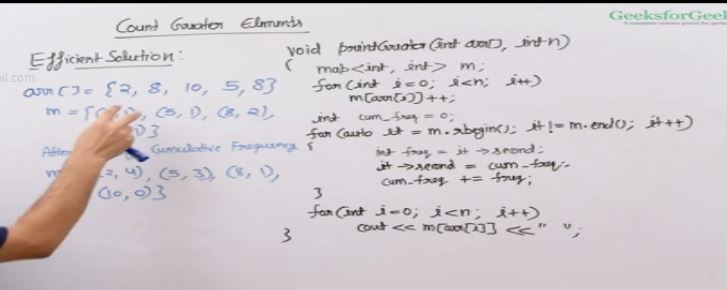 Count Greater Elements
GeeksforGeek
A computer science portal for geeks
Efficient Solution:
arr[] = {2, 8, 10, 5, 8}
m = {( ), (5, 1), (8, 2),
)}
After Cumulative Frequency
m 2, 4), (5, 3), (8, 1),
(10, 0)}
void printGreater(int arr[], int n)
{ map<int, int> m;
for (int i=0; i<n; i++)
m[arr[i]]++;
int cum_freq = 0;
for (auto it = m.rbegin(); it != m.end(); it++)
{ int freq = it->second;
it->second = cum_freq;
cum_freq += freq;
}
for (int i=0; i<n; i++)
cout << m[arr[i]] << " ";
}
ail.com